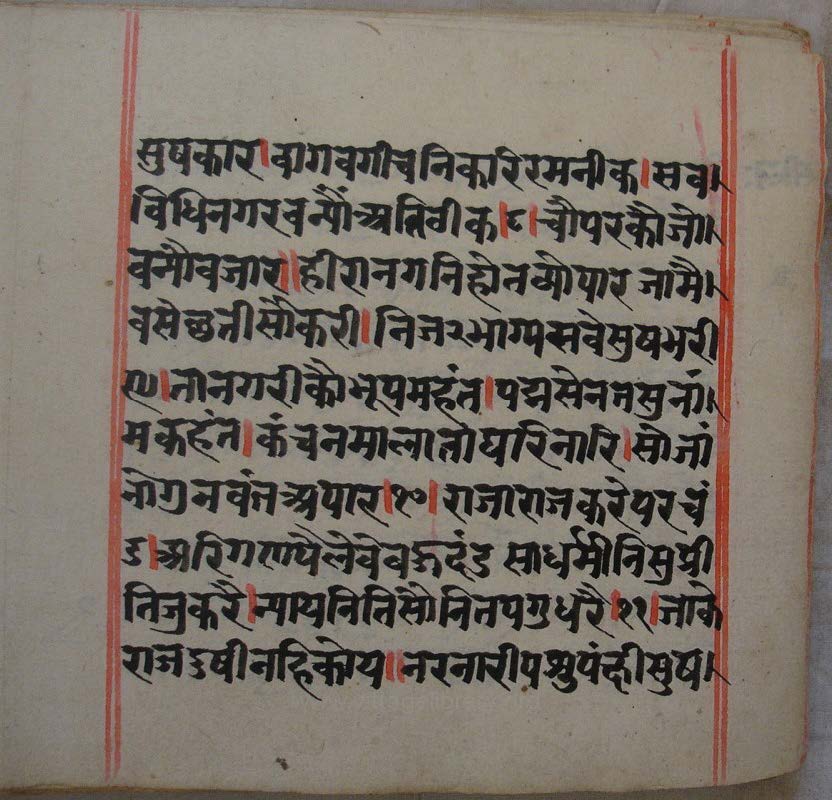 सुषकार।वागवगीचनिकारिरमनीक।सव।
विधिनगरवन्यौंअतिवीक।८।चौपरकौजो।
वनौवजार॥हीरानगनिहोतव्योपारजामै।
वसेछतीसौकरी।निज२भाग्यसवेसुषभरी
९।तानगरीकौभूपमहंत।पद्मसेनतसुनां।
मकहंत।कंचनमालाताघरिनारि।सोजां
नोगुनवंतअपार।१०।राजाराजकरेपरचं
ड।अरिगणपैलेवेवहुदंड साधर्मीनिसुप्री
तिजुकरै।न्यायनितिसौनितपगुधरै।११।जाके
राजदुषीनहिकोय॥नरनारीपशुपंछीसुष।